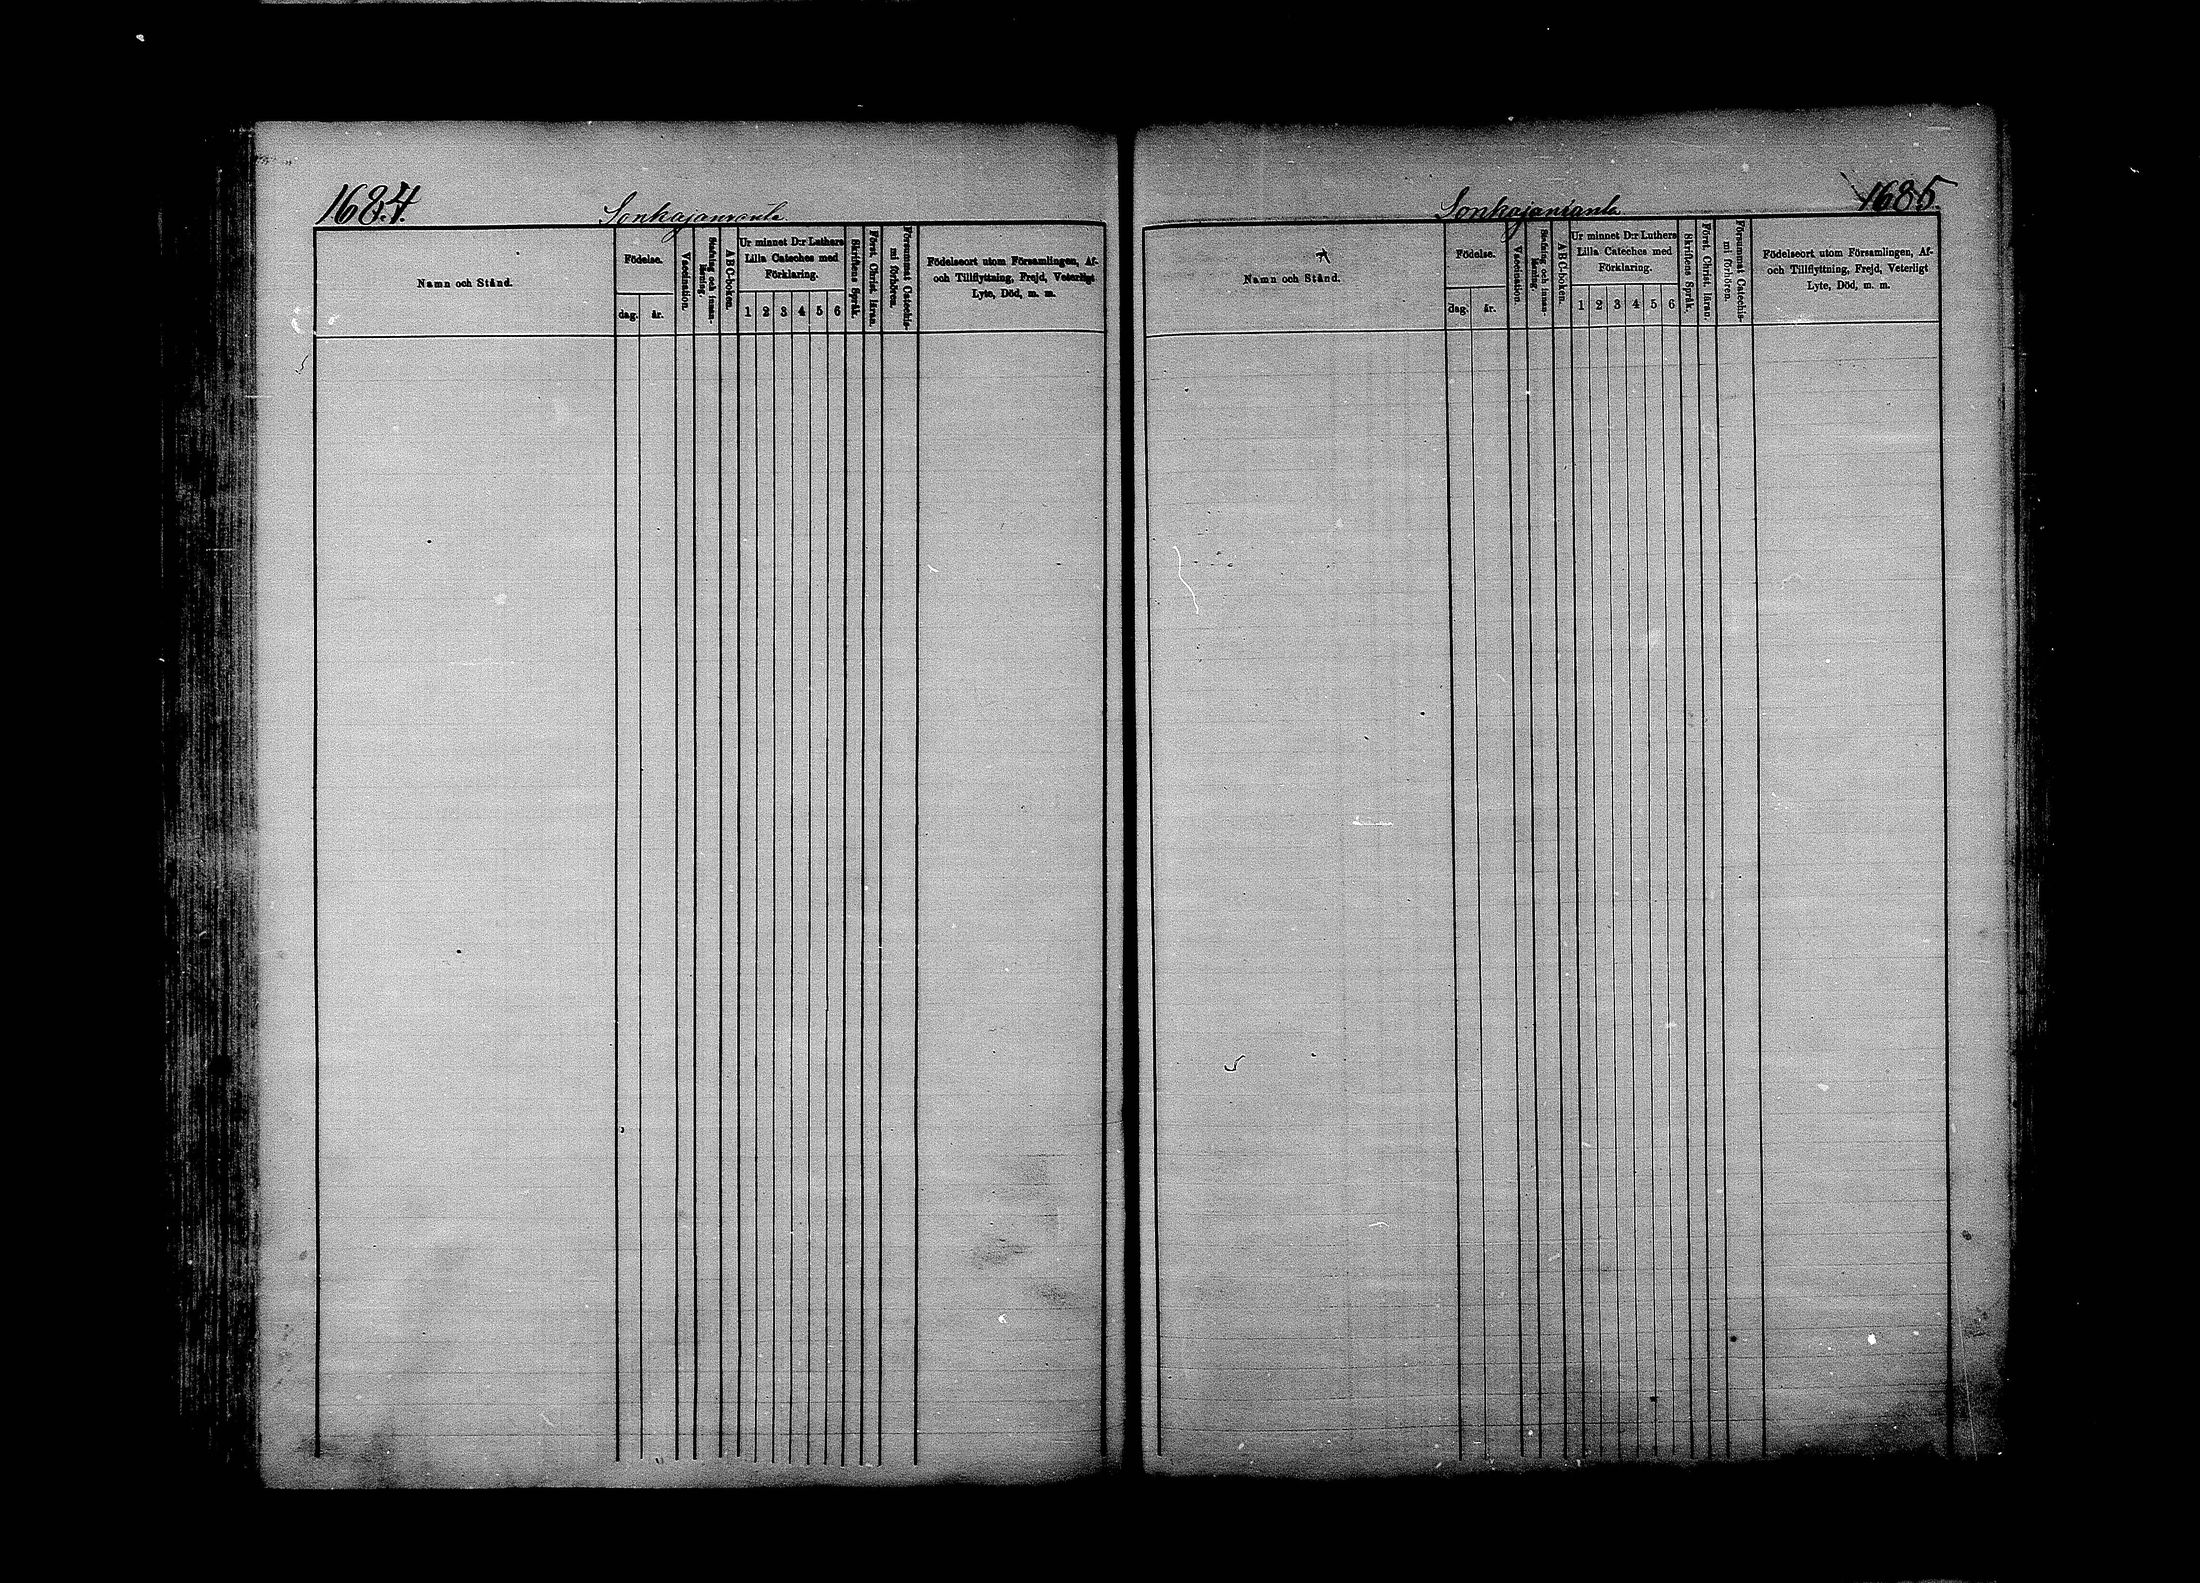 1684.
Sonkajanranta
Namn och Stånd.
Födelse.
dag.
år.
Vaccination.
Stafning och innan-
läsning.
ABC-boken.
Ur minnet D:r Luthers
Lilla Cateches med
Förklaring.
1 2 3 4 5 6
Skriftens Språk.
Först. Christ. läran.
Försummat Catechis-
mi förhören.
Födelseort utom Församlingen, Af-
och Tillflyttning, Frejd, Veterligt
Lyte, Död, m. m.
Sonkajanranta
1685.
Namn och Stånd.
Födelse.
dag.
år.
Vaccination.
Stafning och innan-
läsning.
ABC-boken.
Ur minnet D:r Luthers
Lilla Cateches med
Förklaring.
1 2 3 4 5 6
Skriftens Språk.
Först. Christ. läran.
Försummat Catechis-
mi förhören.
Födelseort utom Församlingen, Af-
och Tillflyttning, Frejd, Veterligt
Lyte, Död, m. m.